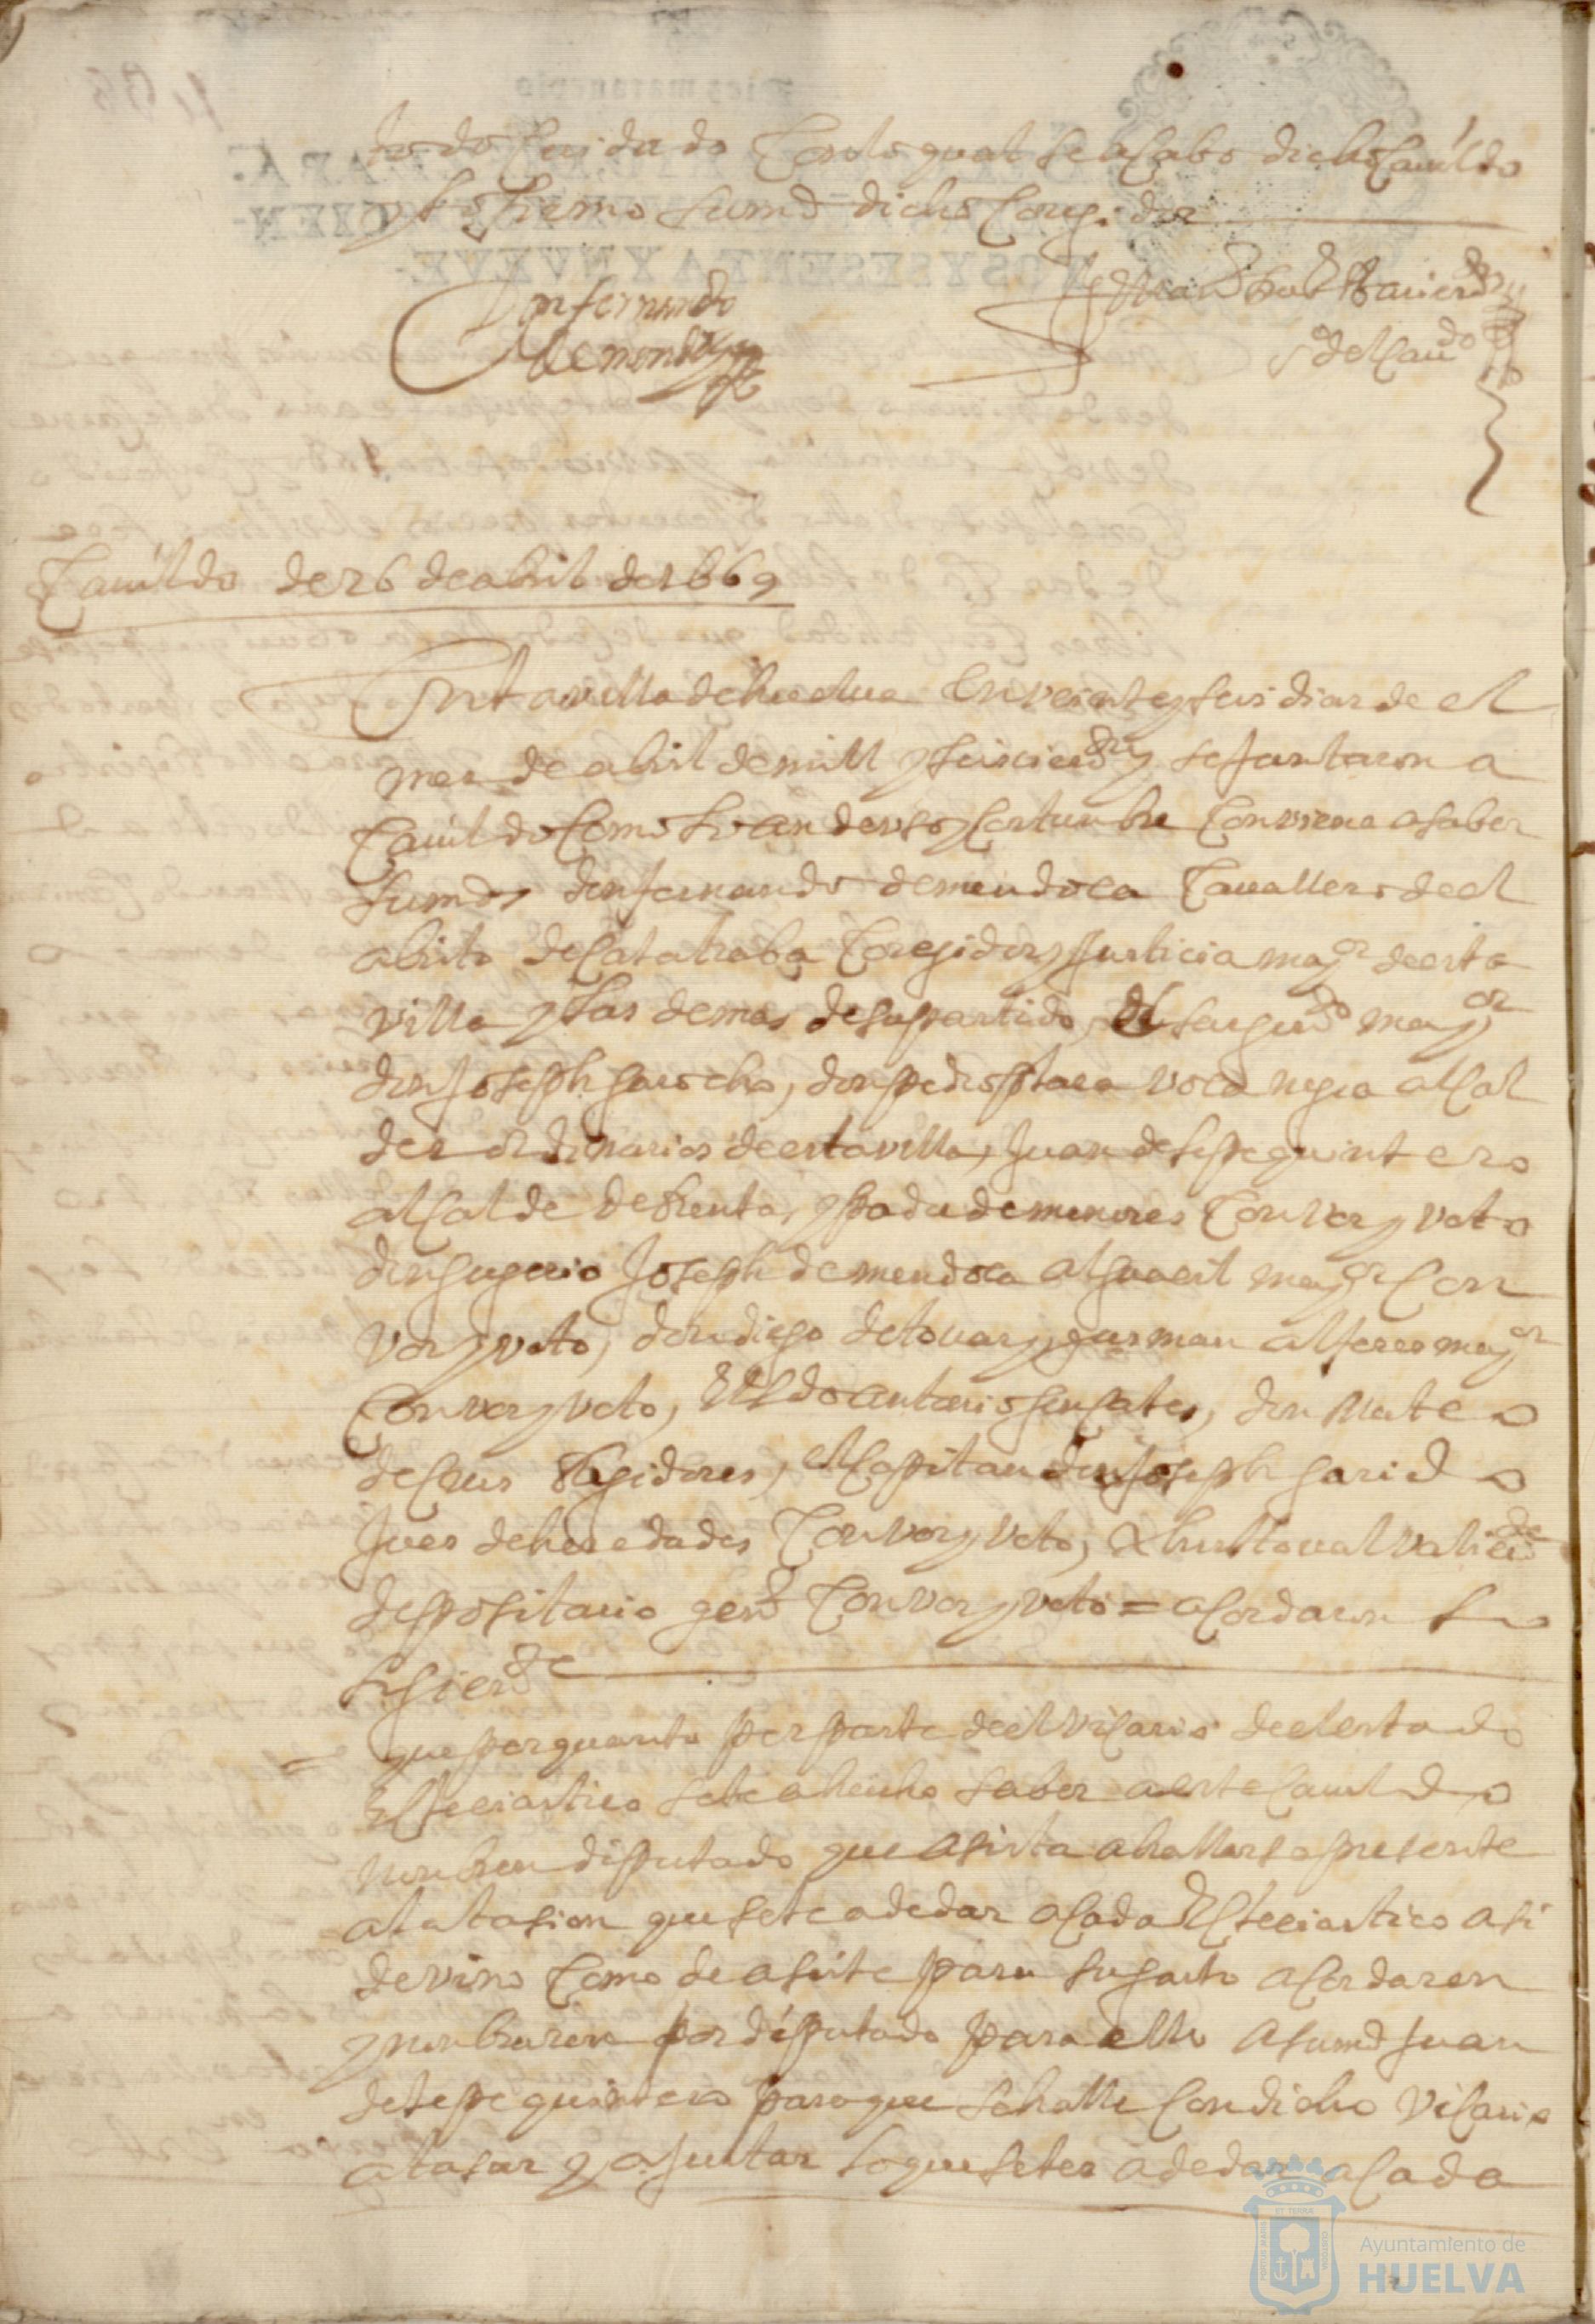 todo Cuidado Con lo qual se acabo dicho Cauildo
y lo firmo su md dicho Coregidor
Don fernando
de mendoza
de el Caudo
Cauildo de 26 de abril de 1669
En la villa de huelua En veinte y seis dias de el
mes de abril de mill y seiscien se Juntaron a
Cauildo Como lo an de vso y Costunbre Conviene a saber
su md don fernando de mendoca Cauallero de el
abito de Calatraba Coregidor y Justicia mayor de esta
villa y las demas de su partido, el sargto mayor
don Joseph garocho, don pedro ptaca voca negra alcal
des ordinarios de esta villa, Juan de lepe quintero
alcalde de Renta, y padre de menores Con vos y voto
don Joseph de mendoca alguacil mayr Con
vos y voto, don diego de touar y gusman alferes mayr
Con vos y voto, El Ldo antonio gonsales, don Mateo
de Crus Regidores, el Capitan don Joseph garido
Jues de heredades Con vos y voto, Xhristoual
depositario genl Con vos y voto = acordaron lo
siguiente
= que por quanto por parte de el vicario de el estado
Eclesiastico se le a hecho saber a este Cauildo
nonbren diputado que asista a hallarse presente
a la tasion que se le a de dar a cada Eclesiastico asi
de vino Como de aseite para su gasto acordaron
y nonbraron por diputado para ello a su md Juan
de lepe quintero para que se halle Con dicho Vicario
a tasar y aJustar lo que se les a de dar a cada
Ayuntamiento de
HUELVA